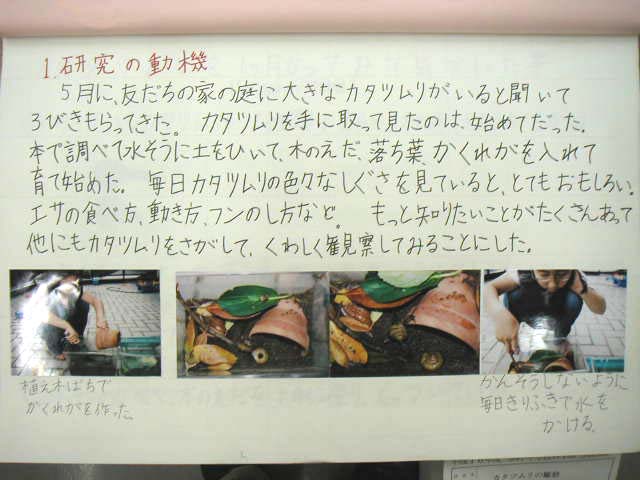 1.研究の動機
5月に、友だちの家の庭に大きなカタツムリがいると聞いて
3びきもらってきた。カタツムリを手に取って見たのは、始めてだった。
本で調べて水そうに土をひいて、木のえだ、落ち葉、かくれがを入れて
育て始めた。毎日カタツムリの色々なしぐさを見ていると、とてもおもしろい。
エサの食べ方、動き方、フンのし方など。もっと知りたいことがたくさんあって
他にもカタツムリをさがして、くわしく観察してみることにした。
植え木ばちで
かくれがを作った。
かんそうしないように
毎日きりふきで水を
かける。
カタツムリの観察